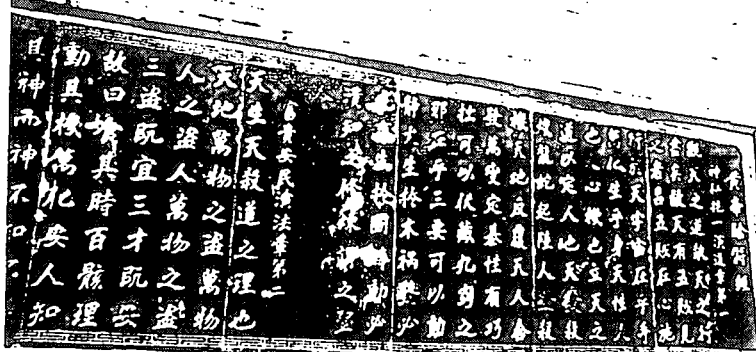 黄帝陰符經
神仙抱一演道章第一
觀天之道執天之行
盡矣故天有五賊見
之者昌五賊在心施
行于天宇宙在乎手
萬化生乎身天性人
也人心機也立天之
道以定人也天發殺
機龍蛇起陸人發殺
機天地反覆天人合
發萬變定基性有巧
拙可以伏藏九竅之
邪在乎三要可以動
静火生於木禍發必
姦生於國時動必
潰知之修煉之聖
富貴安民演法章第二
天生天殺道之理也
天地萬物之盗萬物
人之盗人萬物之盗
三盗既宜三才既安
故曰食其時百骸理
動其機萬化安人知
其神而神不知不